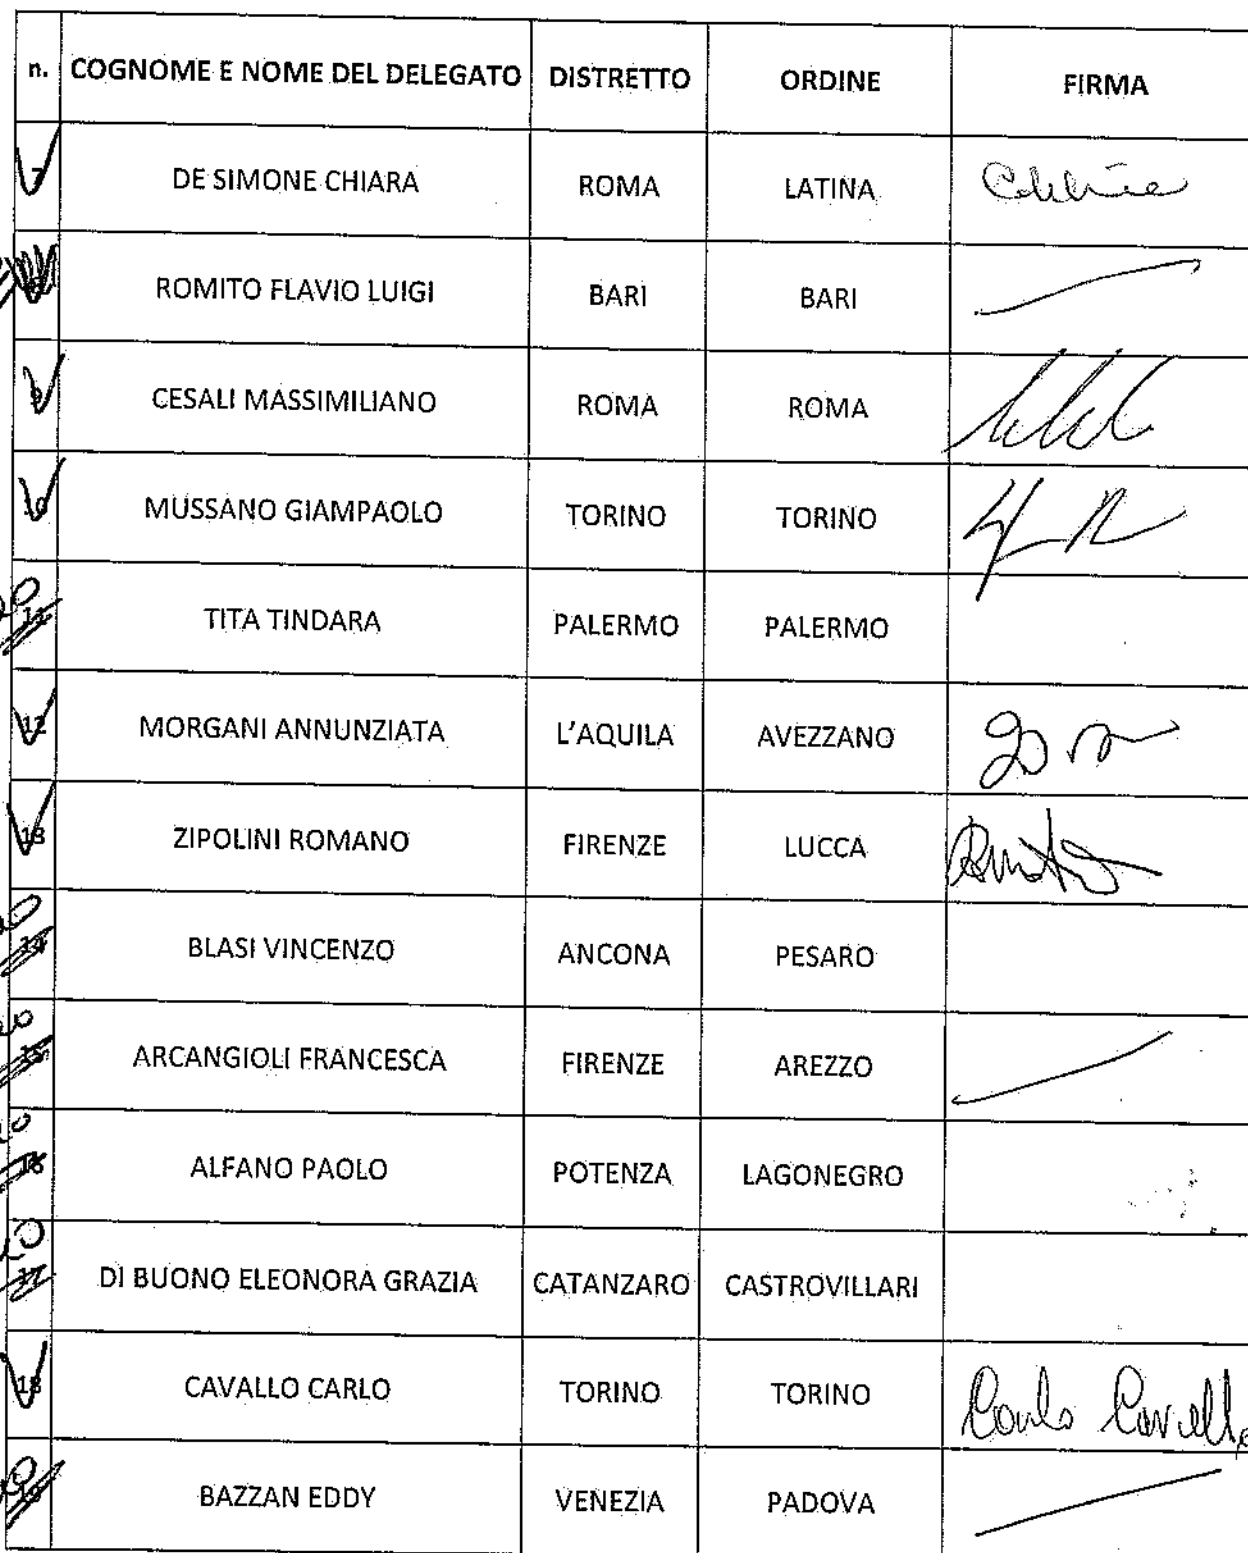 n. COGNOME E NOME DEL DELEGATO DISTRETTO ORDINE FIRMA
7 DE SIMONE CHIARA ROMA LATINA
ROMITO FLAVIO LUIGI BARI BARI
9 CESALI MASSIMILIANO ROMA ROMA
10 MUSSANO GIAMPAOLO TORINO TORINO
11 TITA TINDARA PALERMO PALERMO
12 MORGANI ANNUNZIATA L'AQUILA AVEZZANO
13 ZIPOLINI ROMANO FIRENZE LUCCA
14 BLASI VINCENZO ANCONA PESARO
15 ARCANGIOLI FRANCESCA FIRENZE AREZZO
16 ALFANO PAOLO POTENZA LAGONEGRO
17 DI BUONO ELEONORA GRAZIA CATANZARO CASTROVILLARI
18 CAVALLO CARLO TORINO TORINO Carlo Cavallo
19 BAZZAN EDDY VENEZIA PADOVA